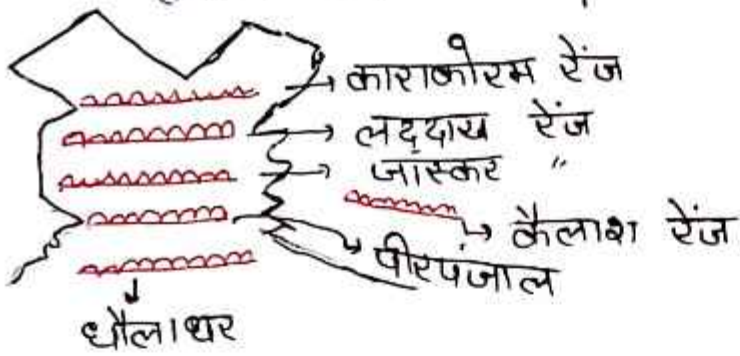 काराकोरम रेंज
लद्दाख रेंज
जास्कर "
कैलाश रेंज
पीरपंजाल
धौलाधर